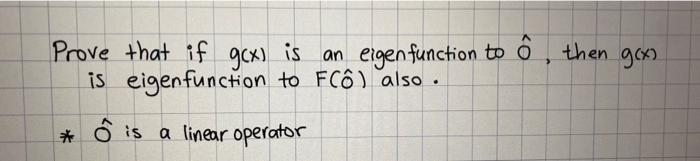 Prove that if g(x) is an eigenfunction to Ô, then g(x)
is eigenfunction to F(ô) also.
* Ô is a linear operator